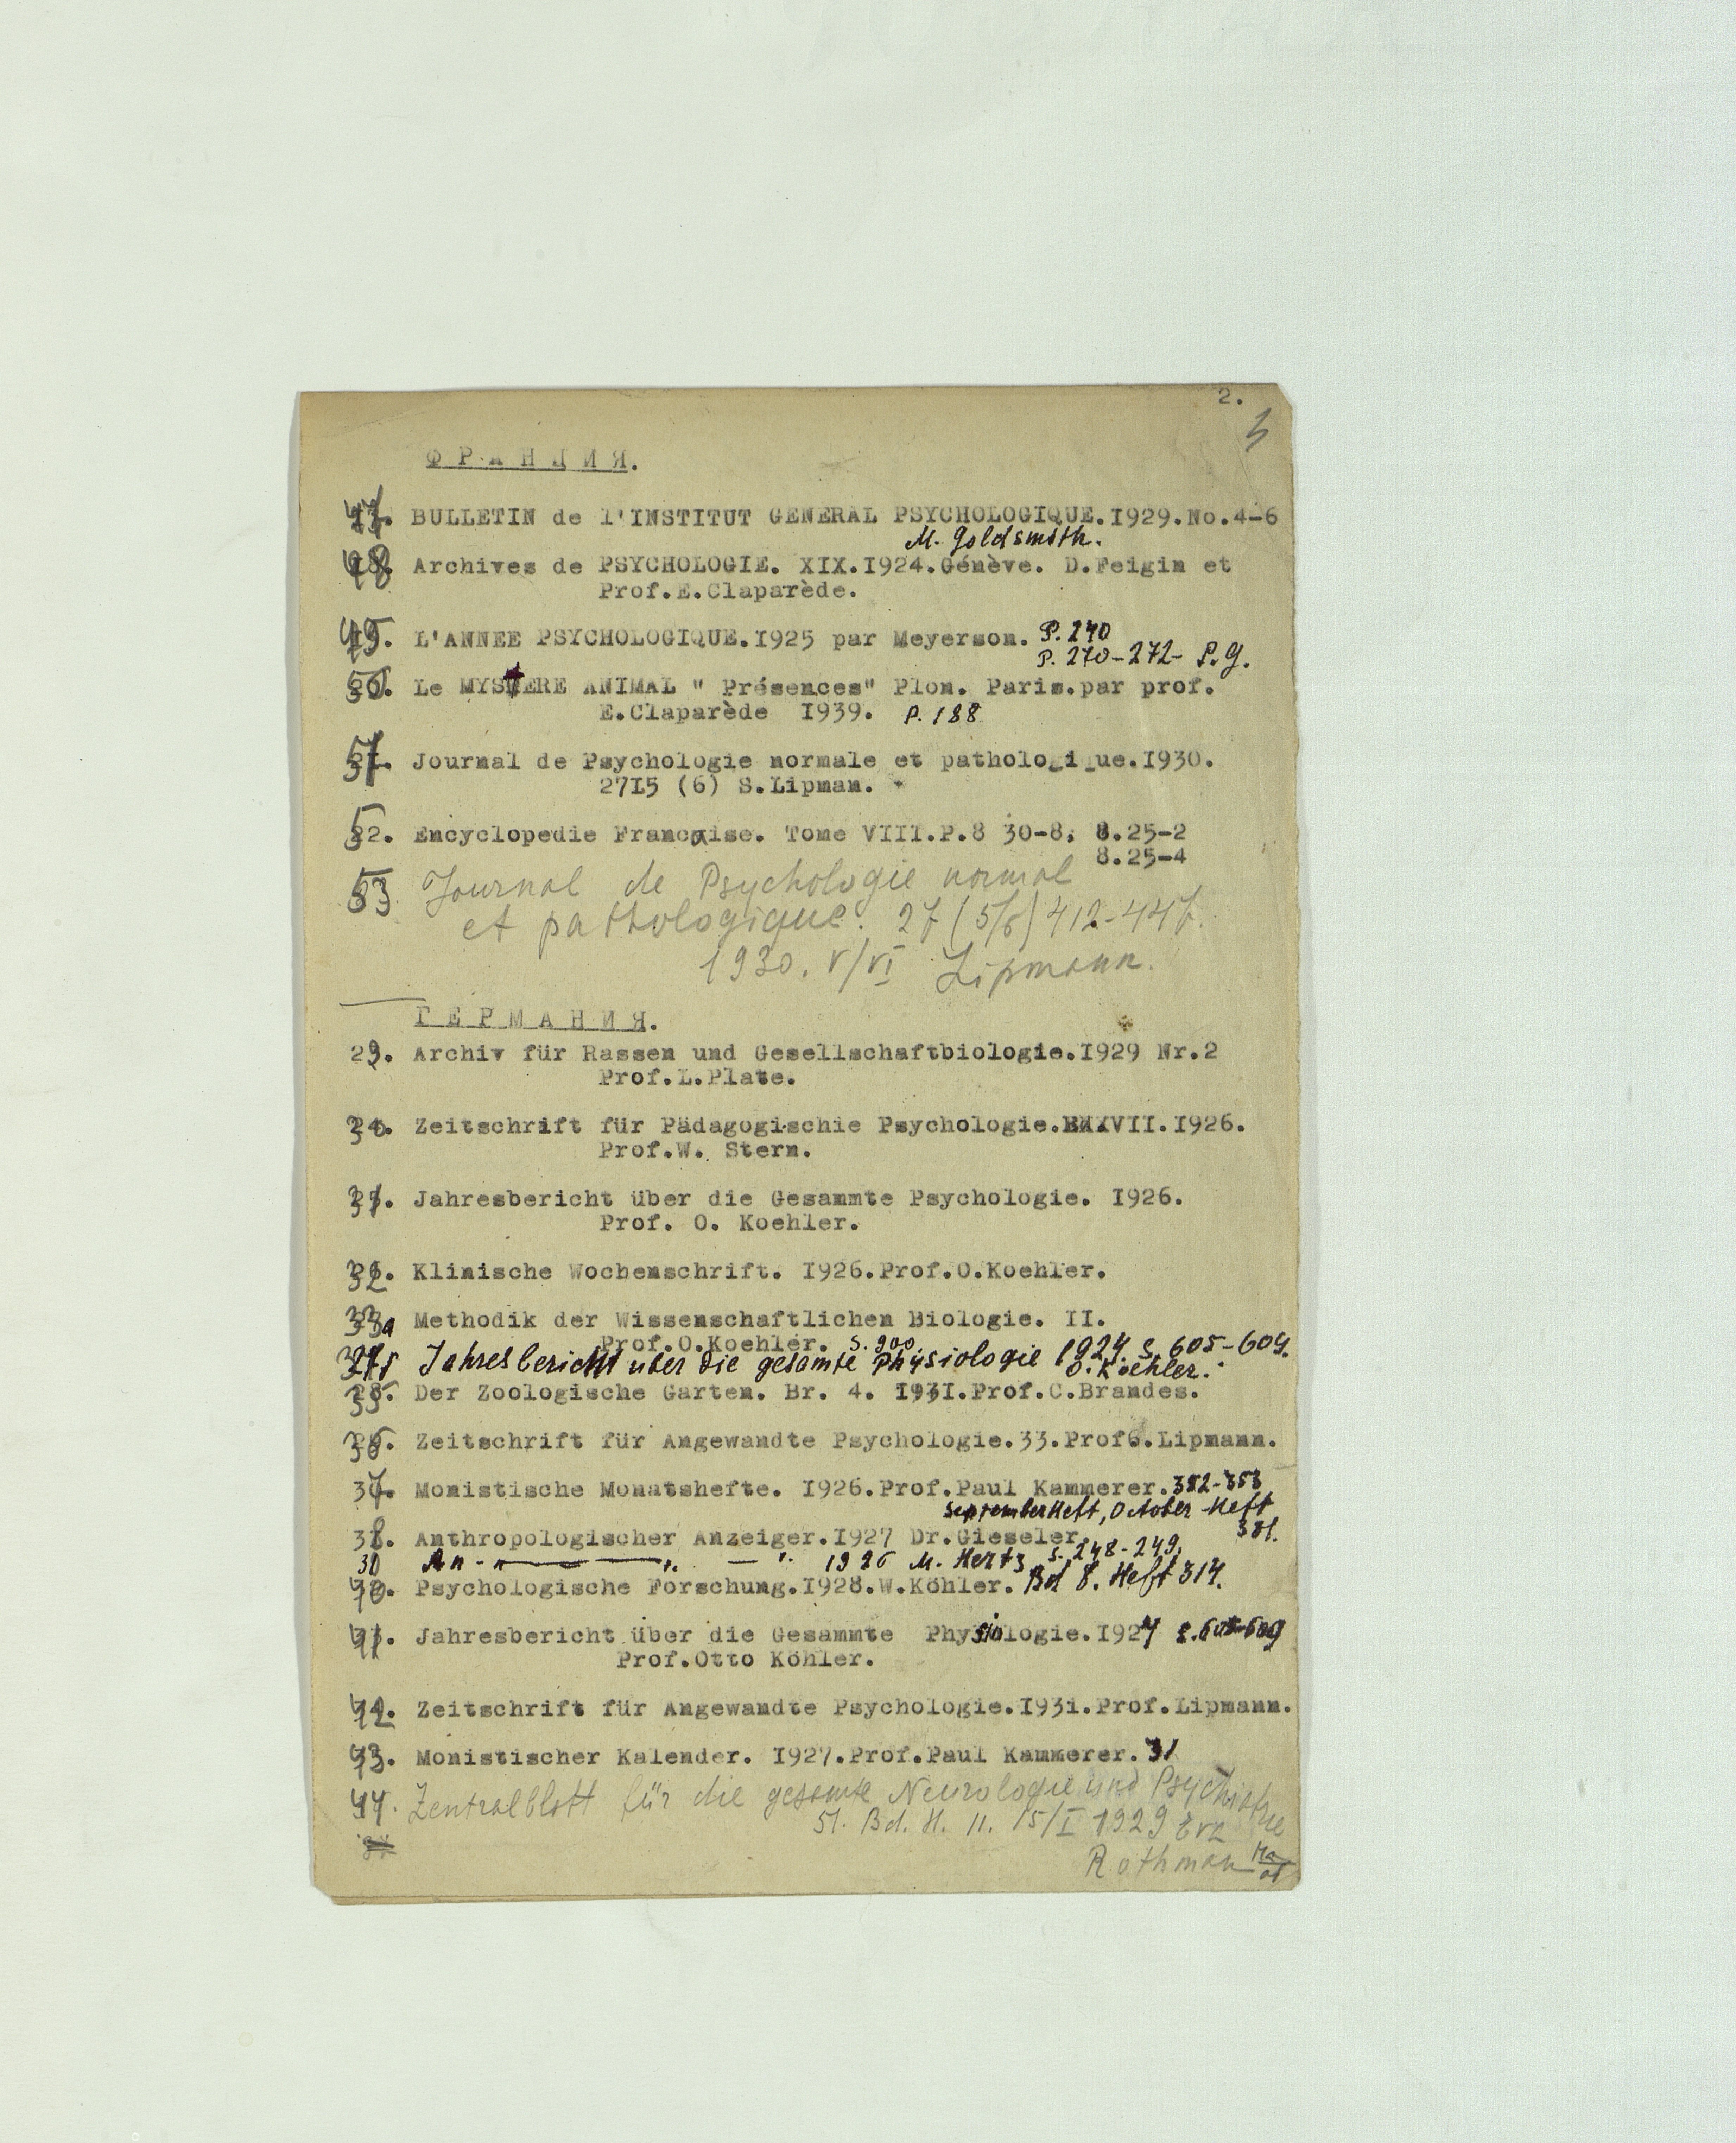 2.
3
ФРАНЦИЯ.
47. BULLETIN de l'INSTITUT GENERAL PSYCHOLOGIQUE.I929.No.4-6
M. Goldsmith.
48. Archives de PSYCHOLOGIE. XIX.I924.Génève. D.Feigin et
Prof.E.Claparède.
49. L'ANNEE PSYCHOLOGIQUE.I925 par Meyerson. P. 240
P. 270-272- P.g.
50. Le MYSTERE ANIMAL " Présences" Plon. Paris.par prof.
E.Claparède I939. P. 188
51. Journal de Psychologie normale et pathologi ue.I930.
27I5 (6) S.Lipman.
52. Encyclopedie Francaise. Tome VIII.P.8 30-8, 8.25-2
8.25-4
53 Journal de Psychologie normal
et pathologique. 27 (5/6) 412-447.
1930. V/VI Lipmann.
ГЕРМАНИЯ.
29. Archiv für Rassen und Gesellschaftbiologie.I929 Nr.2
Prof.L.Plate.
30. Zeitschrift für Pädagogischie Psychologie. I926.
Prof.W. Stern.
31. Jahresbericht über die Gesammte Psychologie. I926.
Prof. O. Koehler.
32. Klinische Wochenschrift. I926.Prof.O.Koehler.
33a Methodik der Wissenschaftlichen Biologie. II.
Prof.O.Koehler. S. 900.
Jahresbericht uber die gesamte Physiologie 1924. S. 605-609.
O. Koehler.
35. Der Zoologische Garten. Br. 4. I93I.Prof.C.Brandes.
36. Zeitschrift für Angewandte Psychologie.33.Prof.Lipmann.
37. Monistische Monatshefte. I926.Prof.Paul Kammerer. 382-383
SeptemberHeft, October-Heft
381.
38. Anthropologischer Anzeiger.I927 Dr.Gieseler
An-"— — " — " 1926 M. Hertz S. 248-249.
40. Psychologische Forschung.I928.W.Köhler. Bd 8. Heft 3/4.
41. Jahresbericht über die Gesammte Physiologie.I924 S.605-609
Prof.Otto Köhler.
42. Zeitschrift für Angewandte Psychologie.I93i.Prof.Lipmann.
43. Monistischer Kalender. I927.Prof.Paul Kammerer. 31
44. Zentralblatt für die gesamte Neurologie und Psychiatrie
51. Bd. H. 11. 15/I 1929
Rothman